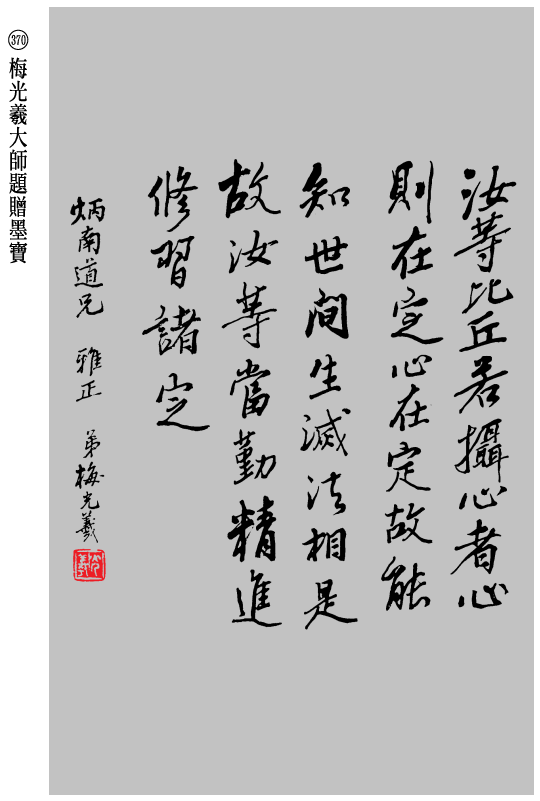 汝等比丘若攝心者心
則在定心在定故能
知世間生滅法相是
故汝等當勤精進
修習諸定
炳南道兄 雅正 弟梅光羲
370 梅光羲大師題贈墨寶